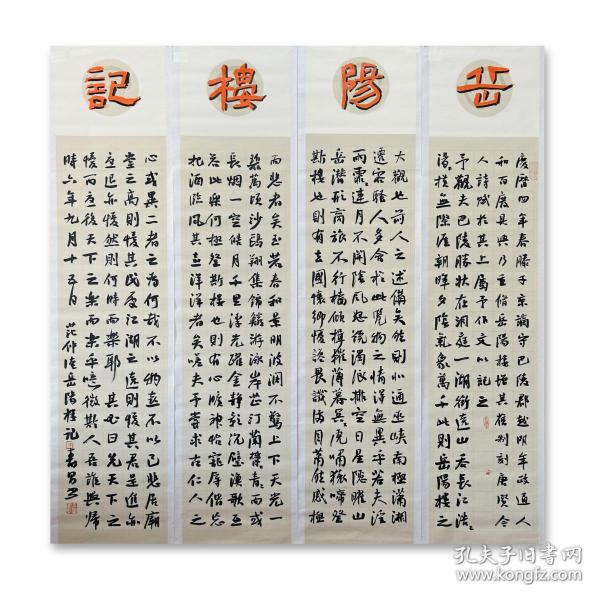 岳
陽
樓
記
慶曆四年春滕子京謫守巴陵郡越明年政通人
和百廢具興乃重修岳陽樓增其舊制刻唐賢今
人詩賦於其上屬予作文以記之
予觀夫巴陵勝狀在洞庭一湖銜遠山吞長江浩〻
湯〻橫無際涯朝暉夕陰氣象萬千此則岳陽樓之
大觀也前人之述備矣然則北通巫峽南極瀟湘
遷客騷人多會於此覽物之情得無異乎若夫淫
雨霏〻連月不開陰風怒號濁浪排空日星隱耀山
岳潛形商旅不行檣傾楫摧薄暮冥〻虎嘯猿啼登
斯樓也則有去國懷鄉憂讒畏譏滿目蕭然感極
而悲者矣至若春和景明波瀾不驚上下天光一
碧萬頃沙鷗翔集錦鱗游泳岸芷汀蘭鬱〻青〻而或
長煙一空皓月千里浮光躍金靜影沉璧漁歌互
答此樂何極登斯樓也則有心曠神怡寵辱偕忘
把酒臨風其喜洋〻者矣嗟夫予嘗求古仁人之
心或異二者之為何哉不以物喜不以己悲居廟
堂之高則憂其民處江湖之遠則憂其君是進亦
憂退亦憂然則何時而樂耶其必曰先天下之
憂而憂後天下之樂而樂乎噫微斯人吾誰與歸
時六年九月十五日 范仲淹岳陽樓記
孔夫子旧书网
www.kongfz.com